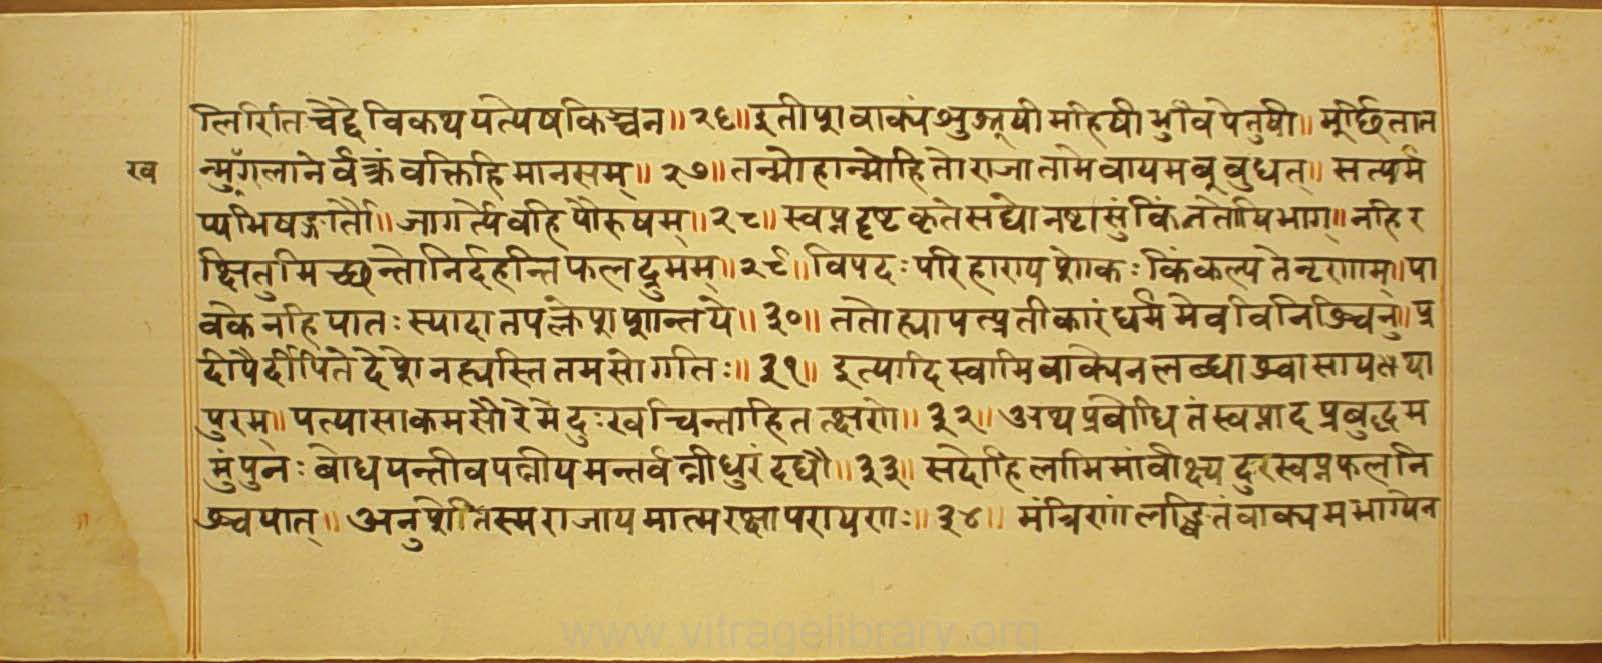 लिरिति चेद्देवि कथयत्येष किञ्चन॥ २६॥ इतीशवाक्यं शुश्रूषी महिषी भुवि पेतुषी॥ मूर्छिता त
ख
न्मुखग्लानेर्वक्त्रं वक्ति हि मानसम्॥ २७॥ तन्मोहान्मोहितो राजा तामेवायमबूबुधत्॥ सत्यम
प्यभिषङ्गार्तौ॥ जागर्त्येव हि पौरुषम्॥ २८॥ स्वप्नदृष्टकृते सद्यो नष्टासुं किं तनोषि माम्॥ नहि र
क्षितुमिच्छन्तो निर्दहन्ति फलद्रुमम्॥ २९॥ विपदः परिहाराय शोकः किं कल्पते नृणाम्॥ पा
वके नहि पातः स्यादातपक्लेशशान्तये॥ ३०॥ ततो ह्यापत्प्रतीकारं धर्ममेव विनिश्चिनु॥ प्र
दीपैर्दीपिते देशे नह्यस्ति तमसो गतिः॥ ३१॥ इत्यादिस्वामिवाक्येन लब्धाश्वासा यथा
पुरम्॥ पत्या साकमसौ रेमे दुःखचिन्ता हि तत्क्षणे॥ ३२॥ अथ प्रबोधितं स्वप्नादप्रबुद्धम
मुं पुनः बोधयन्तीव पत्नीयमन्तर्वत्नी धुरं दधौ॥ ३३॥ सदोहिलामिमां वीक्ष्य दुःस्वप्नफलनि
श्चयात्॥ अनुशेतेस्म राजायमात्मरक्षापरायणः॥ ३४॥ मंत्रिणां लङ्घितं वाक्यमभाग्येन
www.vitragelibrary.org